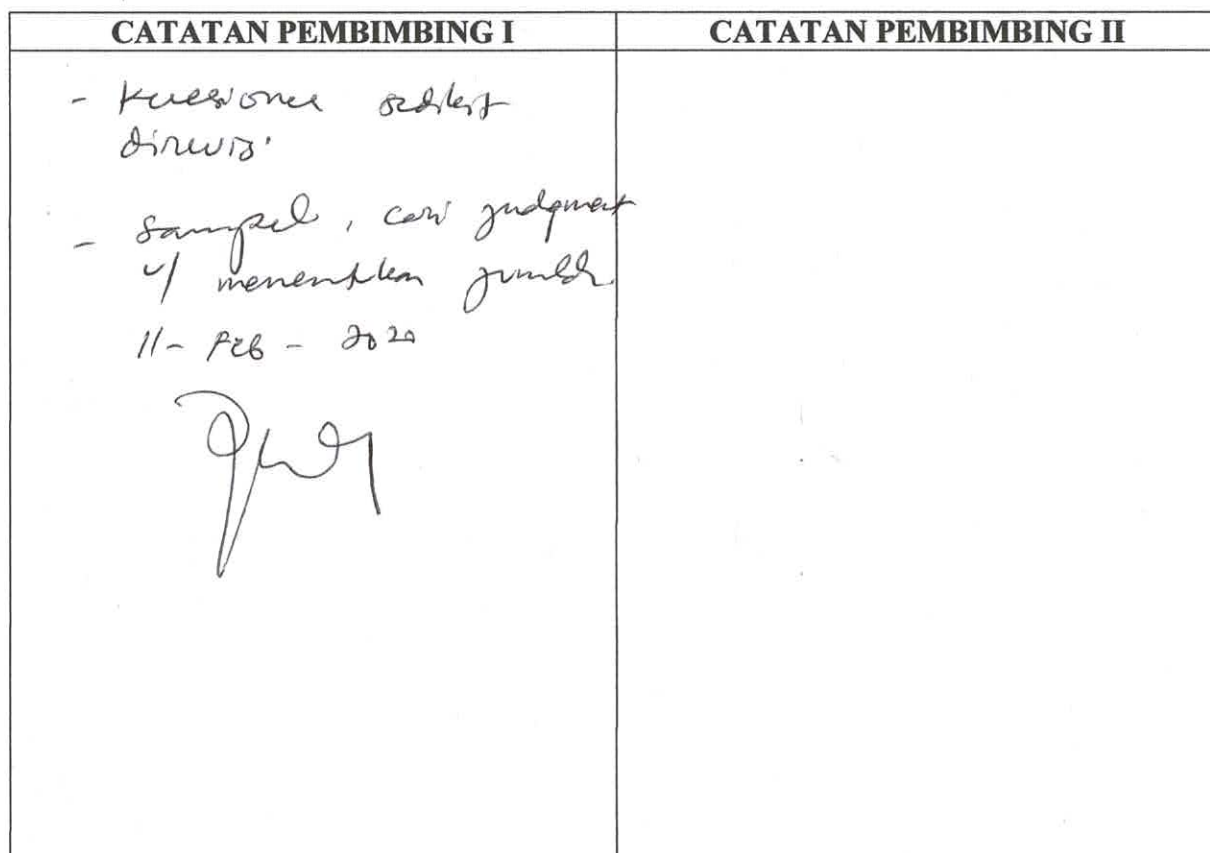 CATATAN PEMBIMBING I
CATATAN PEMBIMBING II
- Kuesioner sedikit
direvisi
- Sampel, cari judgment
u/ menentukan jumlah
11 - Feb - 2020